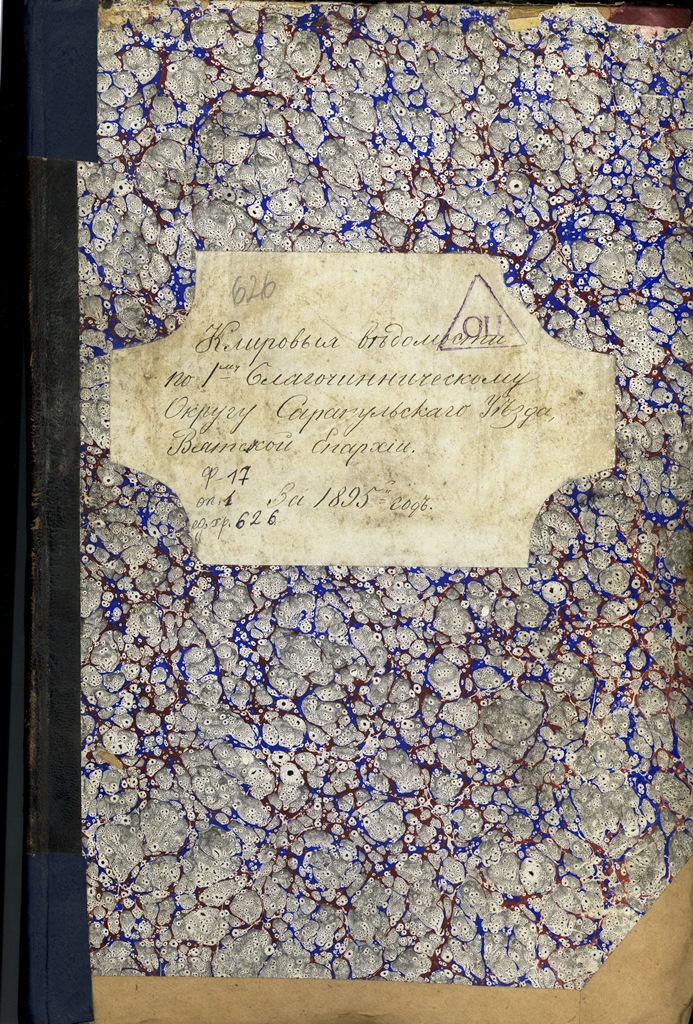 626
ОЦ
Клировыя вѣдомости
по 1му Благочинническому
Округу Сарапульскаго Уѣзда,
Вятской Епархіи.
Ф-17
оп. 1 За 1895й годъ.
ед.хр. 626